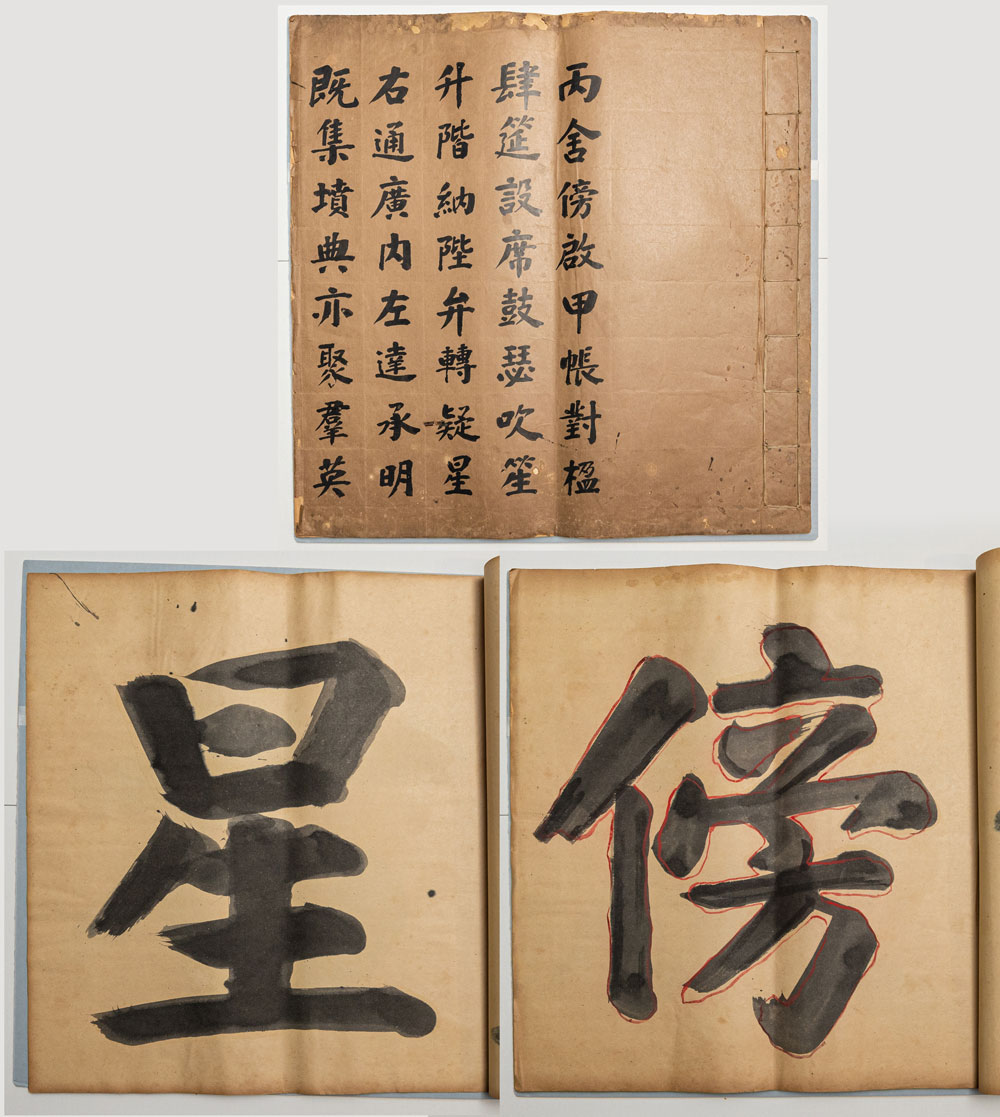 丙舍傍啟甲帳對楹
肆筵設席鼓瑟吹笙
升階納陛弁轉疑星
右通廣内左達承明
既集墳典亦聚羣英
星
傍